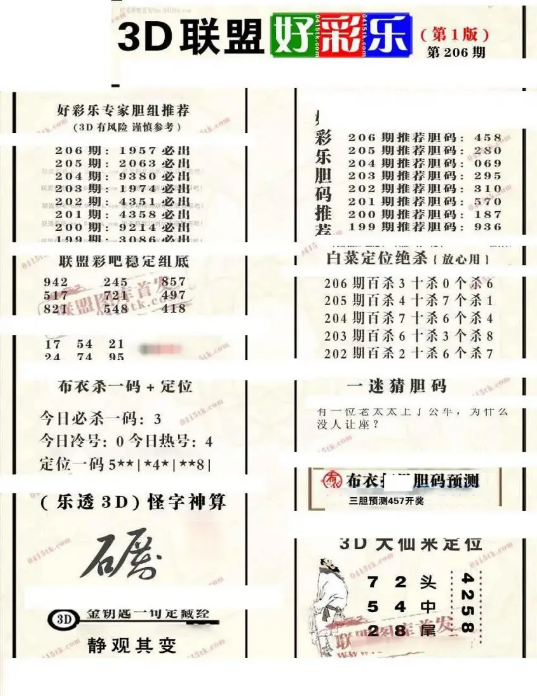 3D联盟好彩乐
(第1版)
第206期
好彩乐专家胆组推荐
(3D有风险 谨慎参考)
206期: 1957必出
205期: 2063必出
204期: 9380必出
203期: 1974必出
202期: 4351必出
201期: 4358必出
200期: 9214必出
199期: 3086必出
联盟彩吧稳定组底
942 245 857
517 721 497
821 548 418
17 54 21
24 74 95
布衣杀一码+定位
今日必杀一码: 3
今日冷号: 0 今日热号: 4
定位一码5**|*4*|**8|
(乐透3D)怪字神算
3D 金钥匙一句定藏经
静观其变
彩乐胆码推荐
206期推荐胆码: 458
205期推荐胆码: 280
204期推荐胆码: 069
203期推荐胆码: 295
202期推荐胆码: 310
201期推荐胆码: 570
200期推荐胆码: 187
199期推荐胆码: 936
白菜定位绝杀(放心用)
206期百杀3十杀0个杀6
205期百杀4十杀7个杀1
204期百杀7十杀6个杀4
203期百杀6十杀3个杀8
202期百杀2十杀6个杀7
一迷猜胆码
有一位老太太上了公车,为什么
没人让座?
布衣 胆码预测
三胆预测457开奖
3D大仙来定位
7 2 头
5 4 中
2 8 尾
4258